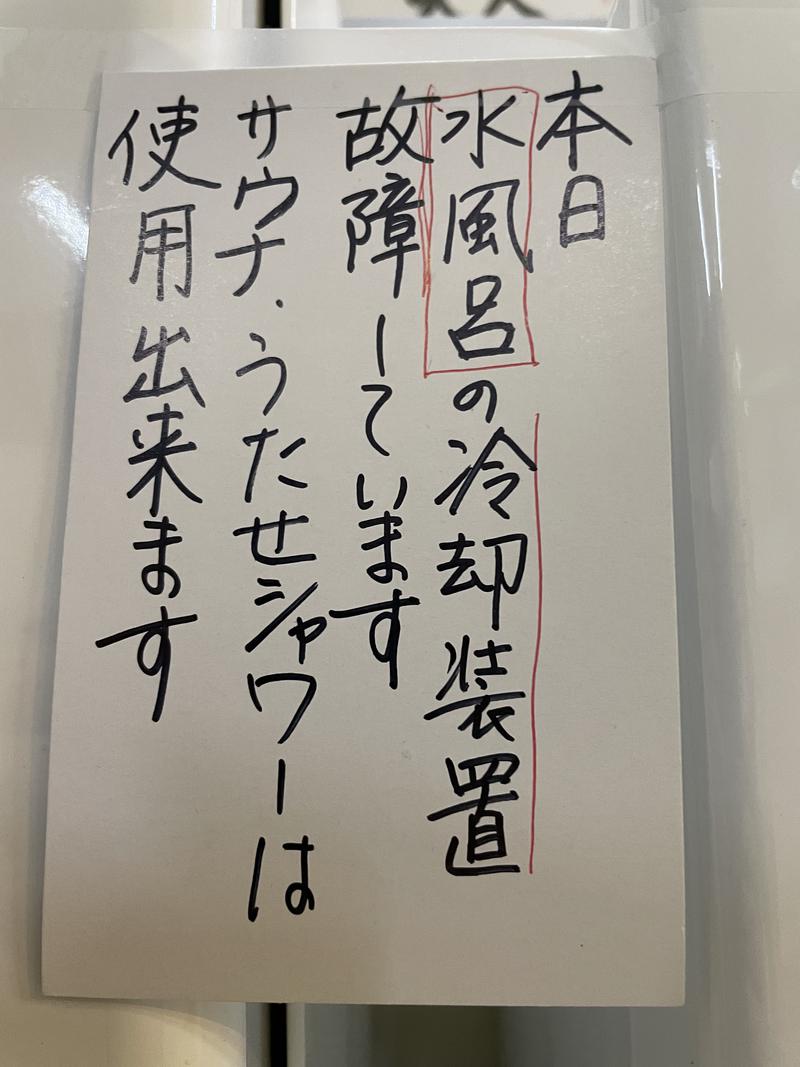 本日
水風呂の冷却装置
故障しています
サウナ・うたせシャワーは
使用出来ます